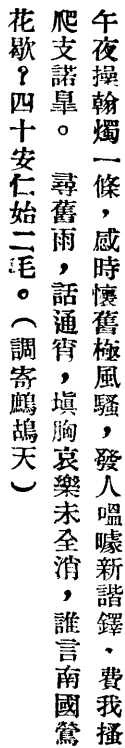 午夜操翰燭一條，感時懷舊極風騷，發人嗢噱新諧鐸．費我搔
爬支諾臯。　尋舊雨，話通宵，塡胸哀樂未全消，誰言南國鶯
花歇？四十安仁始二毛。（調寄鷓鴣天）